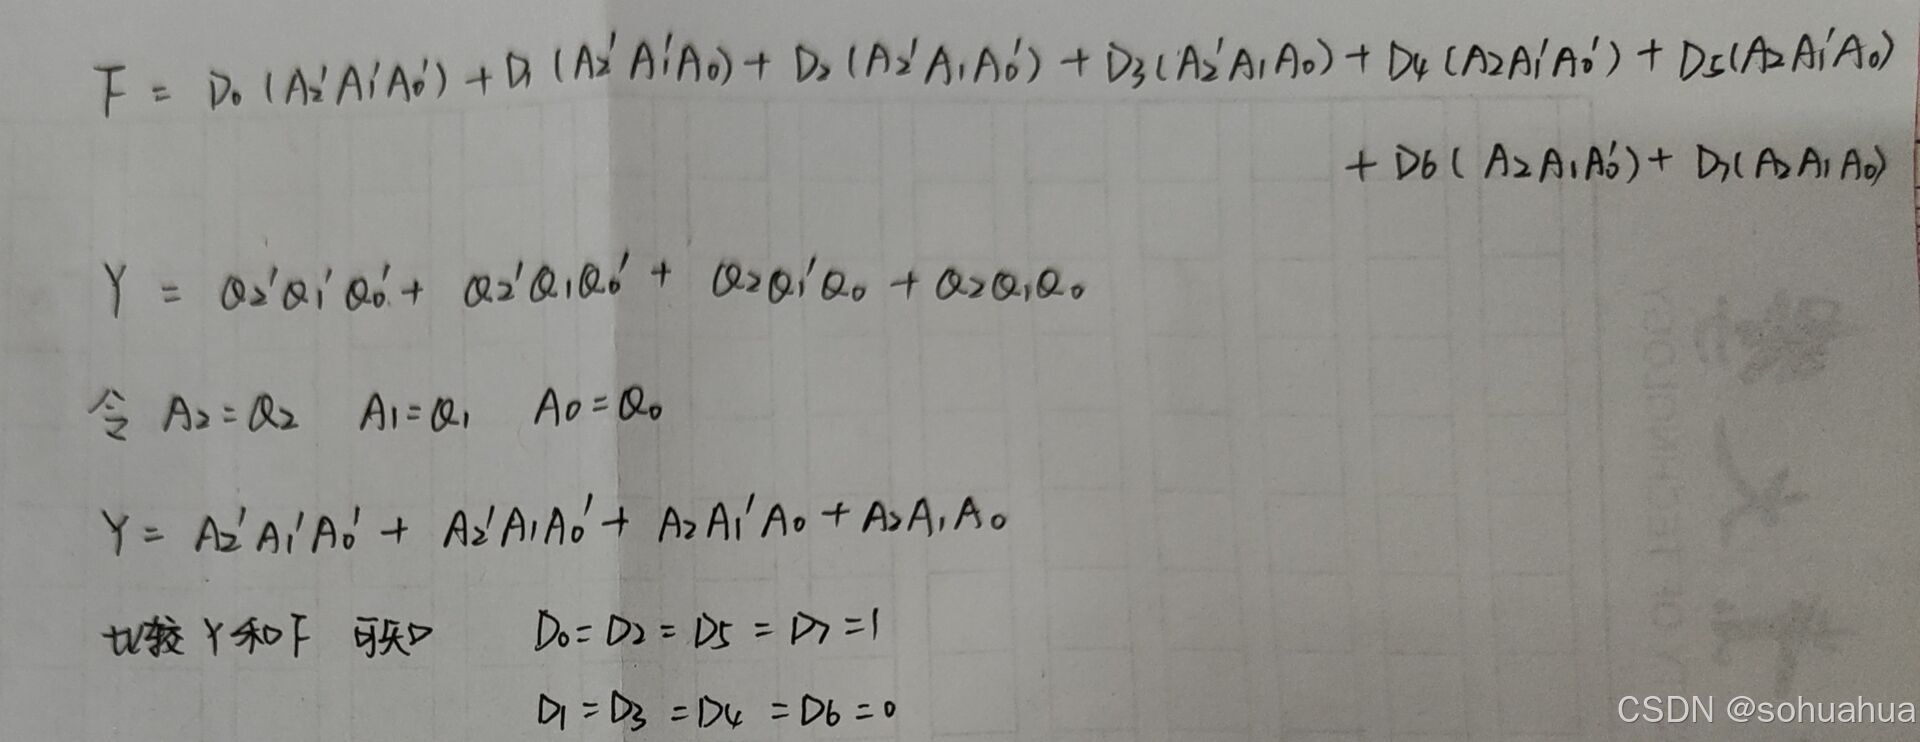 F = D₀(A₂'A₁'A₀') + D₁(A₂'A₁'A₀) + D₂(A₂'A₁A₀') + D₃(A₂'A₁A₀) + D₄(A₂A₁'A₀') + D₅(A₂A₁'A₀)
+ D₆(A₂A₁A₀') + D₇(A₂A₁A₀)
Y = Q₂'Q₁'Q₀' + Q₂'Q₁Q₀' + Q₂Q₁'Q₀ + Q₂Q₁Q₀
令 A₂=Q₂ A₁=Q₁ A₀=Q₀
Y = A₂'A₁'A₀' + A₂'A₁A₀' + A₂A₁'A₀ + A₂A₁A₀
比较 Y 和 F 可知 D₀=D₂=D₅=D₇=1
D₁=D₃=D₄=D₆=0
CSDN @sohuahua